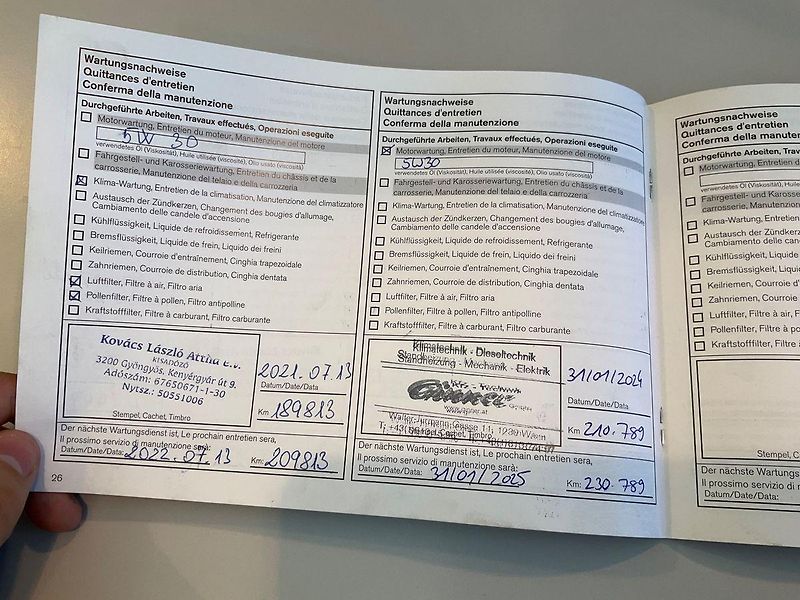 Wartungsnachweise
Quittances d'entretien
Conferma della manutenzione
Durchgeführte Arbeiten, Travaux effectués, Operazioni eseguite
Motorwartung, Entretien du moteur, Manutenzione del motore
5W 30
verwendetes Öl (Viskosität), Huile utilisée (viscosité), Olio usato (viscosità)
Fahrgestell- und Karosseriewartung, Entretien du châssis et de la
carrosserie, Manutenzione del telaio e della carrozzeria
Klima-Wartung, Entretien de la climatisation, Manutenzione del climatizzatore
Austausch der Zündkerzen, Changement des bougies d'allumage,
Cambiamento delle candele d'accensione
Kühlflüssigkeit, Liquide de refroidissement, Refrigerante
Bremsflüssigkeit, Liquide de frein, Liquido dei freini
Keilriemen, Courroie d'entraînement, Cinghia trapezoidale
Zahnriemen, Courroie de distribution, Cinghia dentata
Luftfilter, Filtre à air, Filtro aria
Pollenfilter, Filtre à pollen, Filtro antipolline
Kraftstofffilter, Filtre à carburant, Filtro carburante
Kovács László Attila e.v.
KISADÓZÓ
3200 Gyöngyös, Kenyérgyár út 9.
Adószám: 67650671-1-30
Nytsz.: 50551006
Stempel, Cachet, Timbro
2021.07.13
Datum/Date/Data
Km 189813
Der nächste Wartungsdienst ist, Le prochain entretien sera,
Il prossimo servizio di manutenzione sarà:
Datum/Date/Data: 2022.07.13 Km: 209813
26
Wartungsnachweise
Quittances d'entretien
Conferma della manutenzione
Durchgeführte Arbeiten, Travaux effectués, Operazioni eseguite
Motorwartung, Entretien du moteur, Manutenzione del motore
5W30
verwendetes Öl (Viskosität), Huile utilisée (viscosité), Olio usato (viscosità)
Fahrgestell- und Karosseriewartung, Entretien du châssis et de la
carrosserie, Manutenzione del telaio e della carrozzeria
Klima-Wartung, Entretien de la climatisation, Manutenzione del climatizzatore
Austausch der Zündkerzen, Changement des bougies d'allumage,
Cambiamento delle candele d'accensione
Kühlflüssigkeit, Liquide de refroidissement, Refrigerante
Bremsflüssigkeit, Liquide de frein, Liquido dei freini
Keilriemen, Courroie d'entraînement, Cinghia trapezoidale
Zahnriemen, Courroie de distribution, Cinghia dentata
Luftfilter, Filtre à air, Filtro aria
Pollenfilter, Filtre à pollen, Filtro antipolline
Kraftstofffilter, Filtre à carburant, Filtro carburante
Klimatechnik - Dieseltechnik
Standheizung - Mechanik - Elektrik
Stempel, Cachet, Timbro
31/01/2024
Datum/Date/Data
Km 210.789
Der nächste Wartungsdienst ist, Le prochain entretien sera,
Il prossimo servizio di manutenzione sarà:
Datum/Date/Data: 31/01/2025 Km: 230.789
Wartungsnachweise
Quittances d'entretien
Conferma della manutenzione
Durchgeführte Arbeiten, Travaux
Motorwartung, Entretien
verwendetes Öl (Viskosität), Huile
Fahrgestell- und Karosserie
carrosserie, Manutenzione
Klima-Wartung, Entretien
Austausch der Zündkerzen
Cambiamento delle candele
Kühlflüssigkeit, Liquide
Bremsflüssigkeit, Liquide
Keilriemen, Courroie
Zahnriemen, Courroie
Luftfilter, Filtre à air, F
Pollenfilter, Filtre à p
Kraftstofffilter, Filtre
Stempel, C
Der nächste Wartungsdienst
Il prossimo servizio di m
Datum/Date/Data: